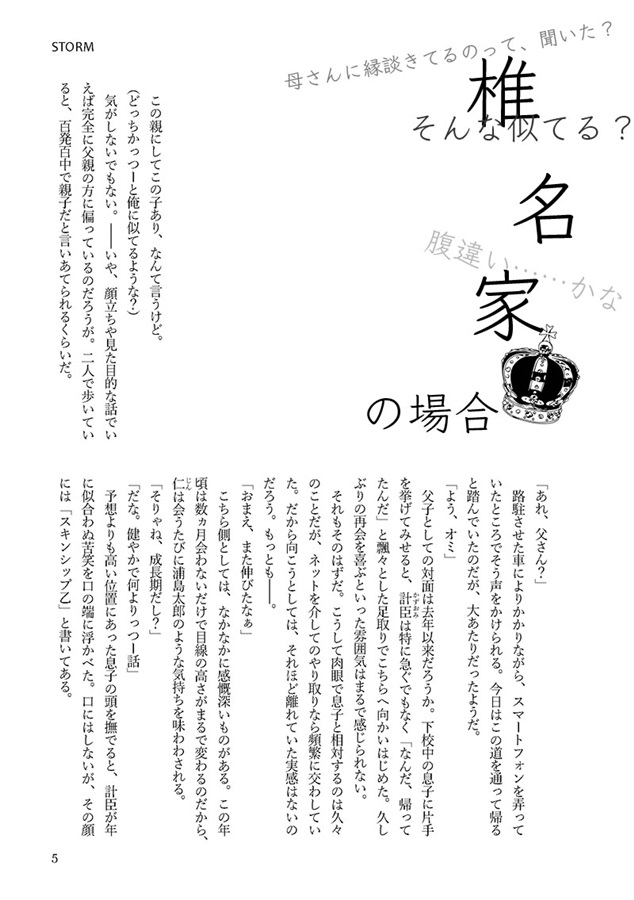 STORM
母さんに縁談きてるのって、聞いた？
そんな似てる？
腹違い……かな
椎名家
の場合
この親にしてこの子あり、なんて言うけど。
（どっちかっつーと俺に似てるような？）
気がしないでもない。――いや、顔立ちや見た目的な話でい
えば完全に父親の方に偏っているのだろうが。二人で歩いてい
ると、百発百中で親子だと言いあてられるくらいだ。
「あれ、父さん？」
路駐させた車によりかかりながら、スマートフォンを弄って
いたところでそう声をかけられる。今日はこの道を通って帰る
と踏んでいたのだが、大あたりだったようだ。
「よう、オミ」
父子としての対面は去年以来だろうか。下校中の息子に片手
を挙げてみせると、計臣は特に急ぐでもなく「なんだ、帰って
かずおみ
たんだ」と飄々とした足取りでこちらへ向かいはじめた。久し
ぶりの再会を喜ぶといった雰囲気はまるで感じられない。
それもそのはずだ。こうして肉眼で息子と相対するのは久々
のことだが、ネットを介してのやり取りなら頻繁に交わしてい
た。だから向こうとしては、それほど離れていた実感はないの
だろう。もっとも――。
「おまえ、また伸びたなぁ」
こちら側としては、なかなかに感慨深いものがある。この年
頃は数ヵ月会わないだけで目線の高さがまるで変わるのだから、
仁は会うたびに浦島太郎のような気持ちを味わわされる。
じん
「そりゃね、成長期だし？」
「だな。健やかで何よりっつー話」
予想よりも高い位置にあった息子の頭を撫でると、計臣が年
に似合わぬ苦笑を口の端に浮かべた。口にはしないが、その顔
には「スキンシップ乙」と書いてある。
5